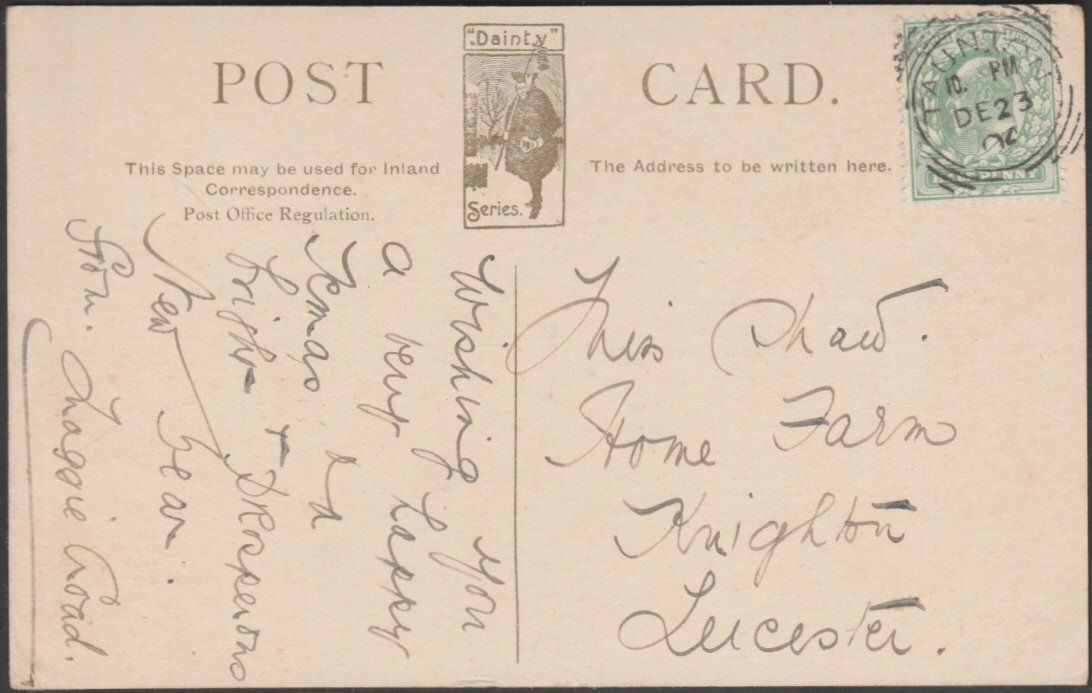 POST CARD.
"Dainty"
Series.
This Space may be used for Inland
Correspondence.
Post Office Regulation.
The Address to be written here.
TAUNTON
10. PM
DE 23
PENNY
Wishing you
a very happy
Xmas & a
bright & Prosperous
New Year.
from. Maggie Coad.
Miss Shaw.
Home Farm
Knighton
Leicester.